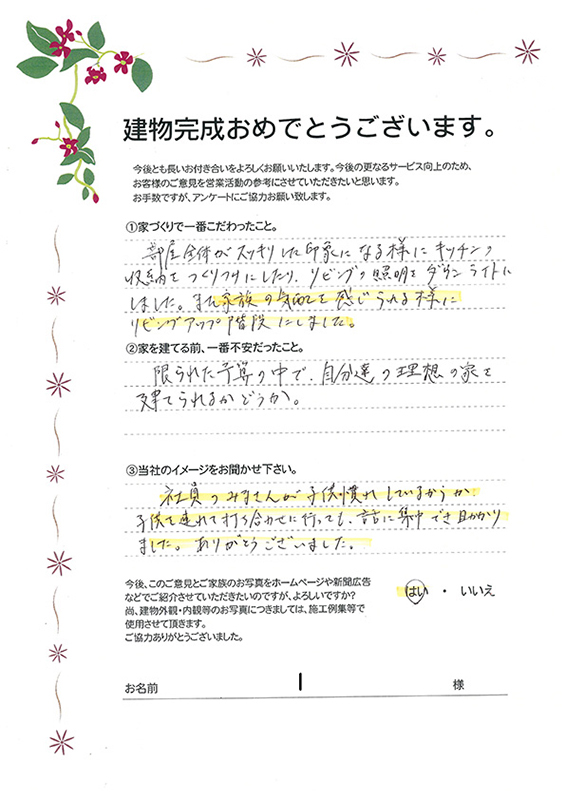 建物完成おめでとうございます。
今後とも長いお付き合いをよろしくお願いいたします。今後の更なるサービス向上のため、
お客様のご意見を営業活動の参考にさせていただきたいと思います。
お手数ですが、アンケートにご協力お願い致します。
①家づくりで一番こだわったこと。
部屋全体がスッキリした印象になる様にキッチンの
収納をつくりつけにしたり、リビングの照明をダウンライトに
しました。また家族の気配を感じられる様に
リビングアップ階段にしました。
②家を建てる前、一番不安だったこと。
限られた予算の中で、自分達の理想の家を
建てられるかどうか。
③当社のイメージをお聞かせ下さい。
社員のみなさんが子供慣れしているからか、
子供を連れて打ち合わせに行っても、話に集中でき助かり
ました。ありがとうございました。
今後、このご意見とご家族のお写真をホームページや新聞広告
などでご紹介させていただきたいのですが、よろしいですか?
はい ・ いいえ
尚、建物外観・内観等のお写真につきましては、施工例集等で
使用させて頂きます。
ご協力ありがとうございました。
お名前 様